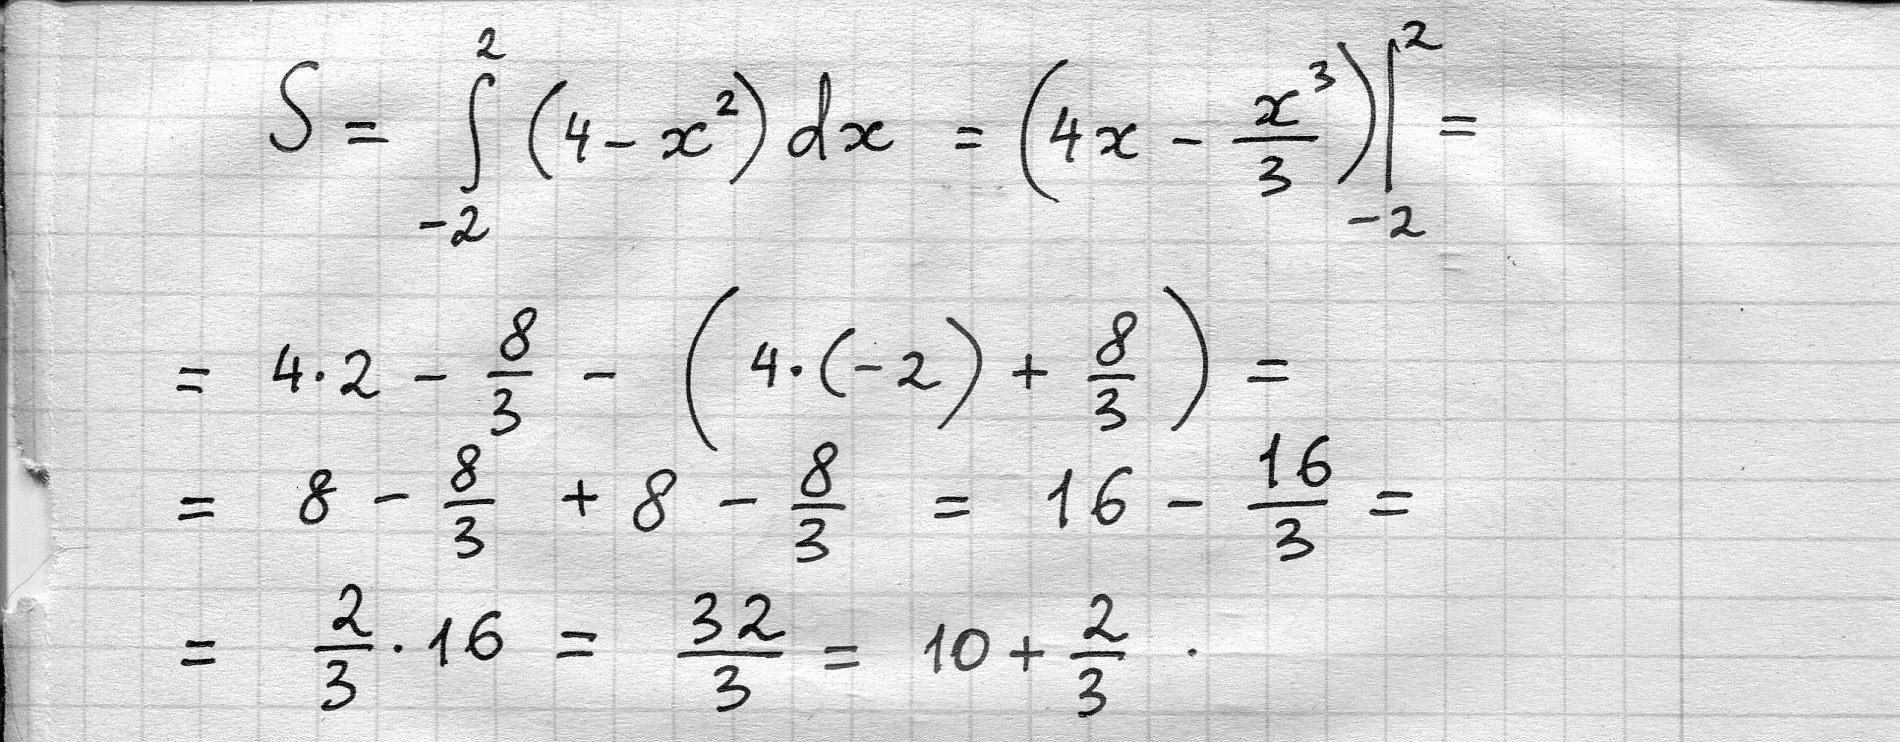 S = ∫_{-2}^{2} (4 - x²) dx = (4x - x³/3)|_{-2}^{2} =
= 4·2 - 8/3 - (4·(-2) + 8/3) =
= 8 - 8/3 + 8 - 8/3 = 16 - 16/3 =
= 2/3 · 16 = 32/3 = 10 + 2/3 .